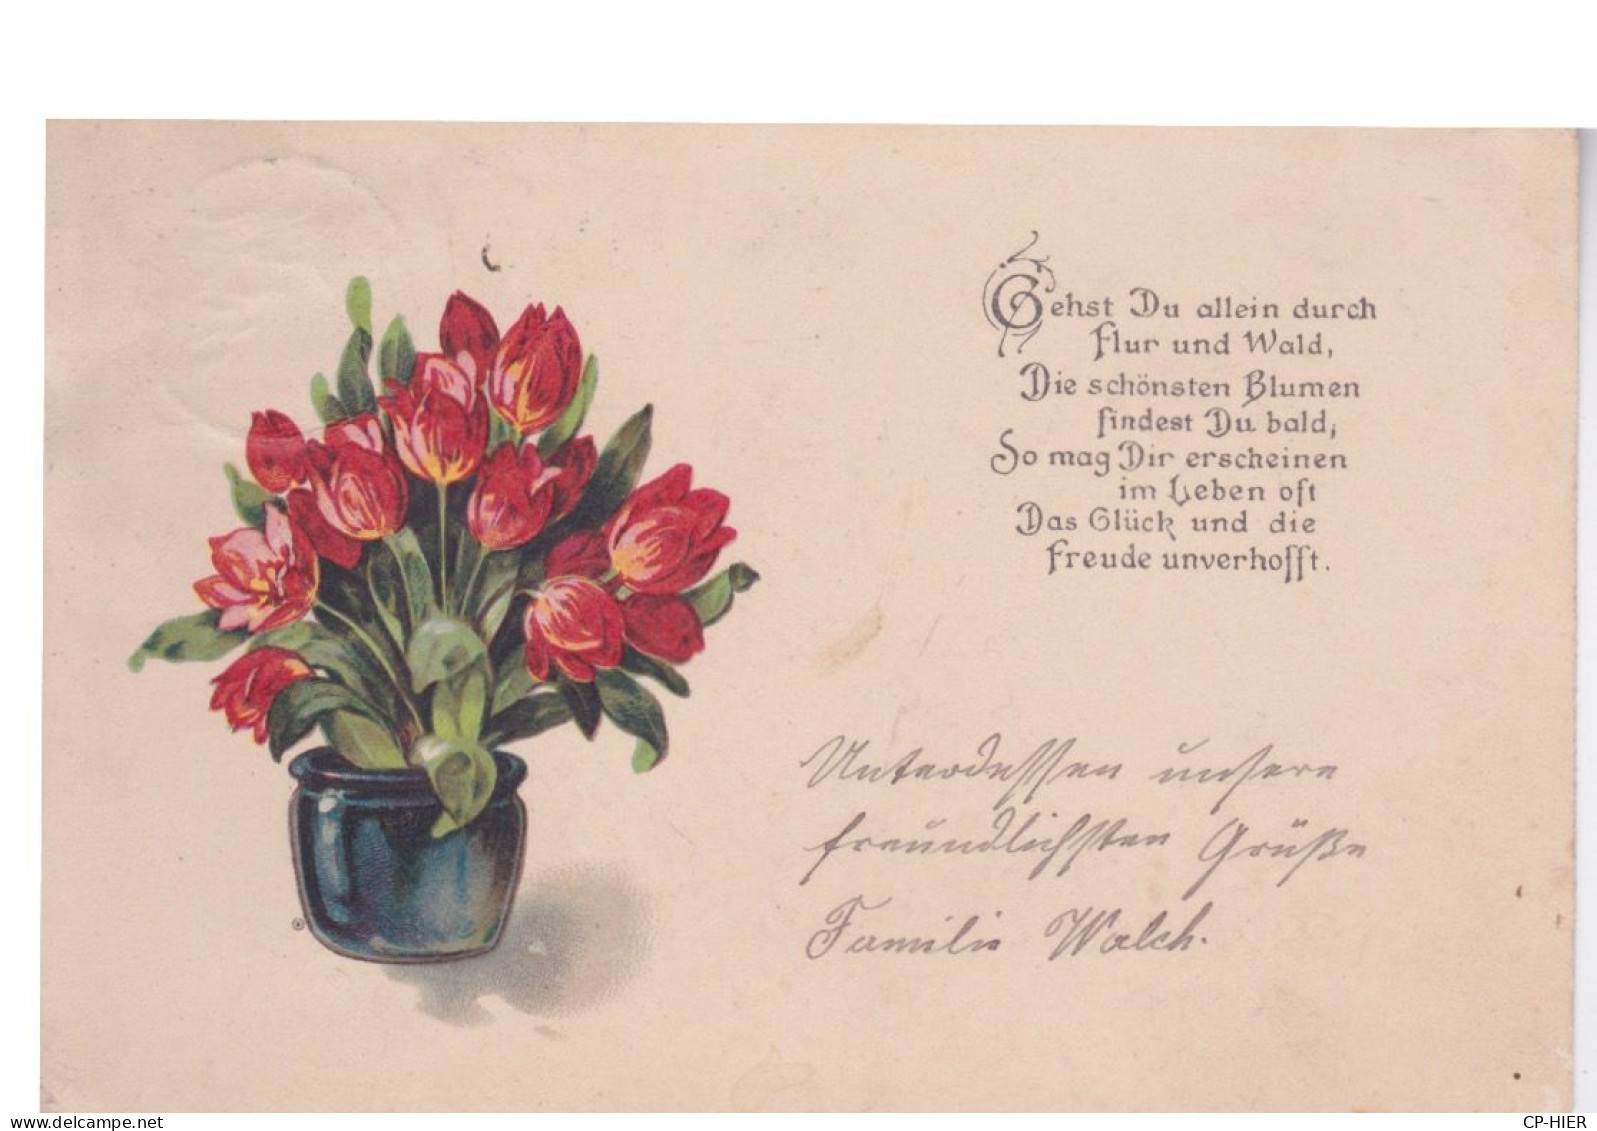 Gehst Du allein durch
Flur und Wald,
Die schönsten Blumen
findest Du bald;
So mag Dir erscheinen
im Leben oft
Das Glück und die
Freude unverhofft.
Unterdessen unsere
freundlichsten Grüße
Familie Walch.
www.delcampe.net
CP-HIER